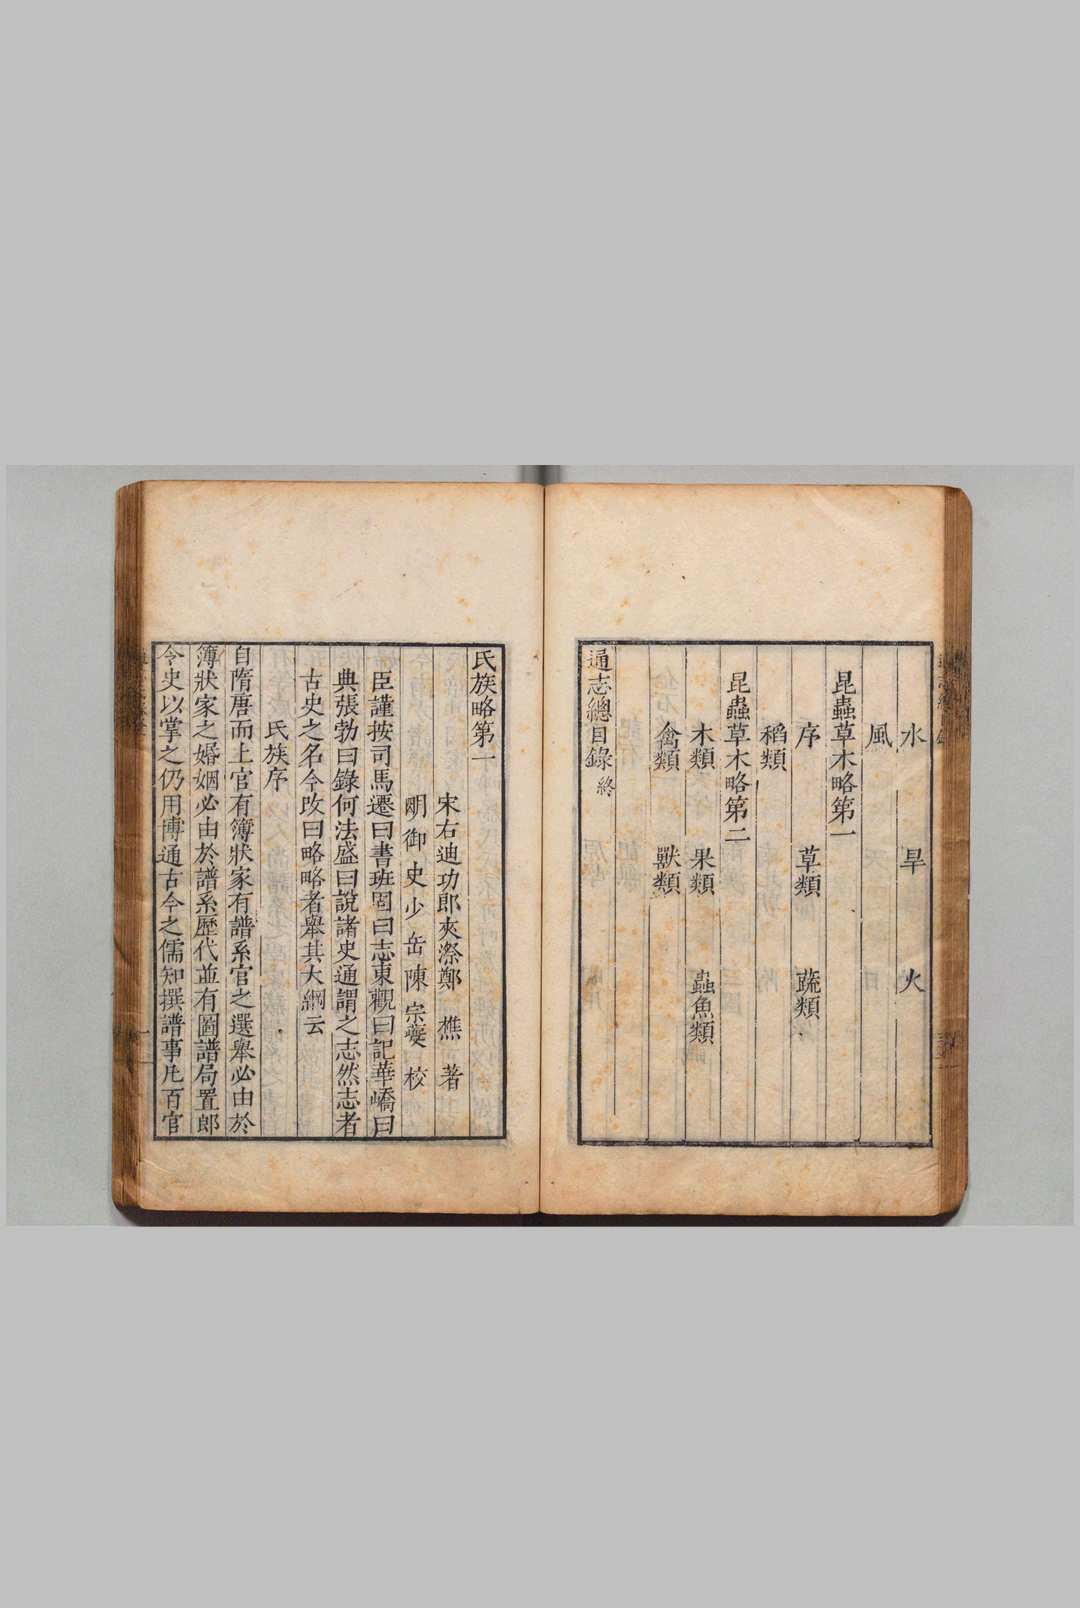 水 旱 火
風
昆蟲草木略第一
序 草類 蔬類
稻類
昆蟲草木略第二
木類 果類 蟲魚類
禽類 獸類
通志總目錄 終
氏族略第一
宋右迪功郎夾漈鄭 樵 著
明御史少岳陳宗夔 校
臣謹按司馬遷曰書班固曰志東觀曰記華嶠曰
典張勃曰錄何法盛曰說諸史通謂之志然志者
古史之名今攺曰略略者舉其大綱云
氏族序
自隋唐而上官有簿狀家有譜系官之選舉必由於
簿狀家之婚姻必由於譜系歷代並有圖譜局置郎
令史以掌之仍用博通古今之儒知撰譜事凡百官